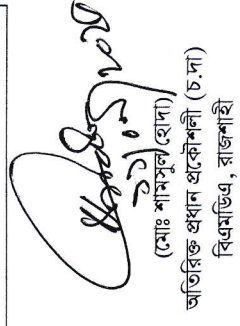 (মোঃ শামসুল হোদা)
অতিরিক্ত প্রধান প্রকৌশলী (চ.দা)
বিএমডিএ, রাজশাহী